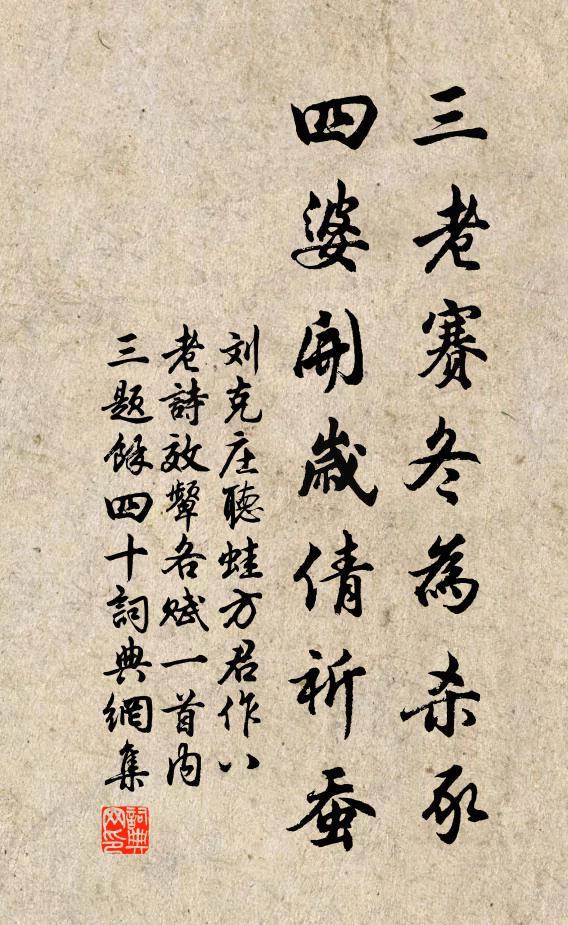 三老賽冬為杀豕
四婆開歲倩祈蚕
刘克庄聽蛙方君作八
老詩效顰各賦一首内
三題餘四十詞典網集
詞典
网印